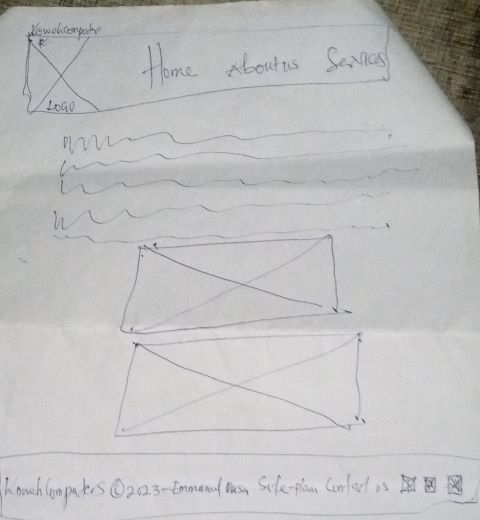 Kowahcomputer
Home Aboutus Services
LOGO
KowahComputers ©2023-Emmanuel Musa Site-plan Contact us